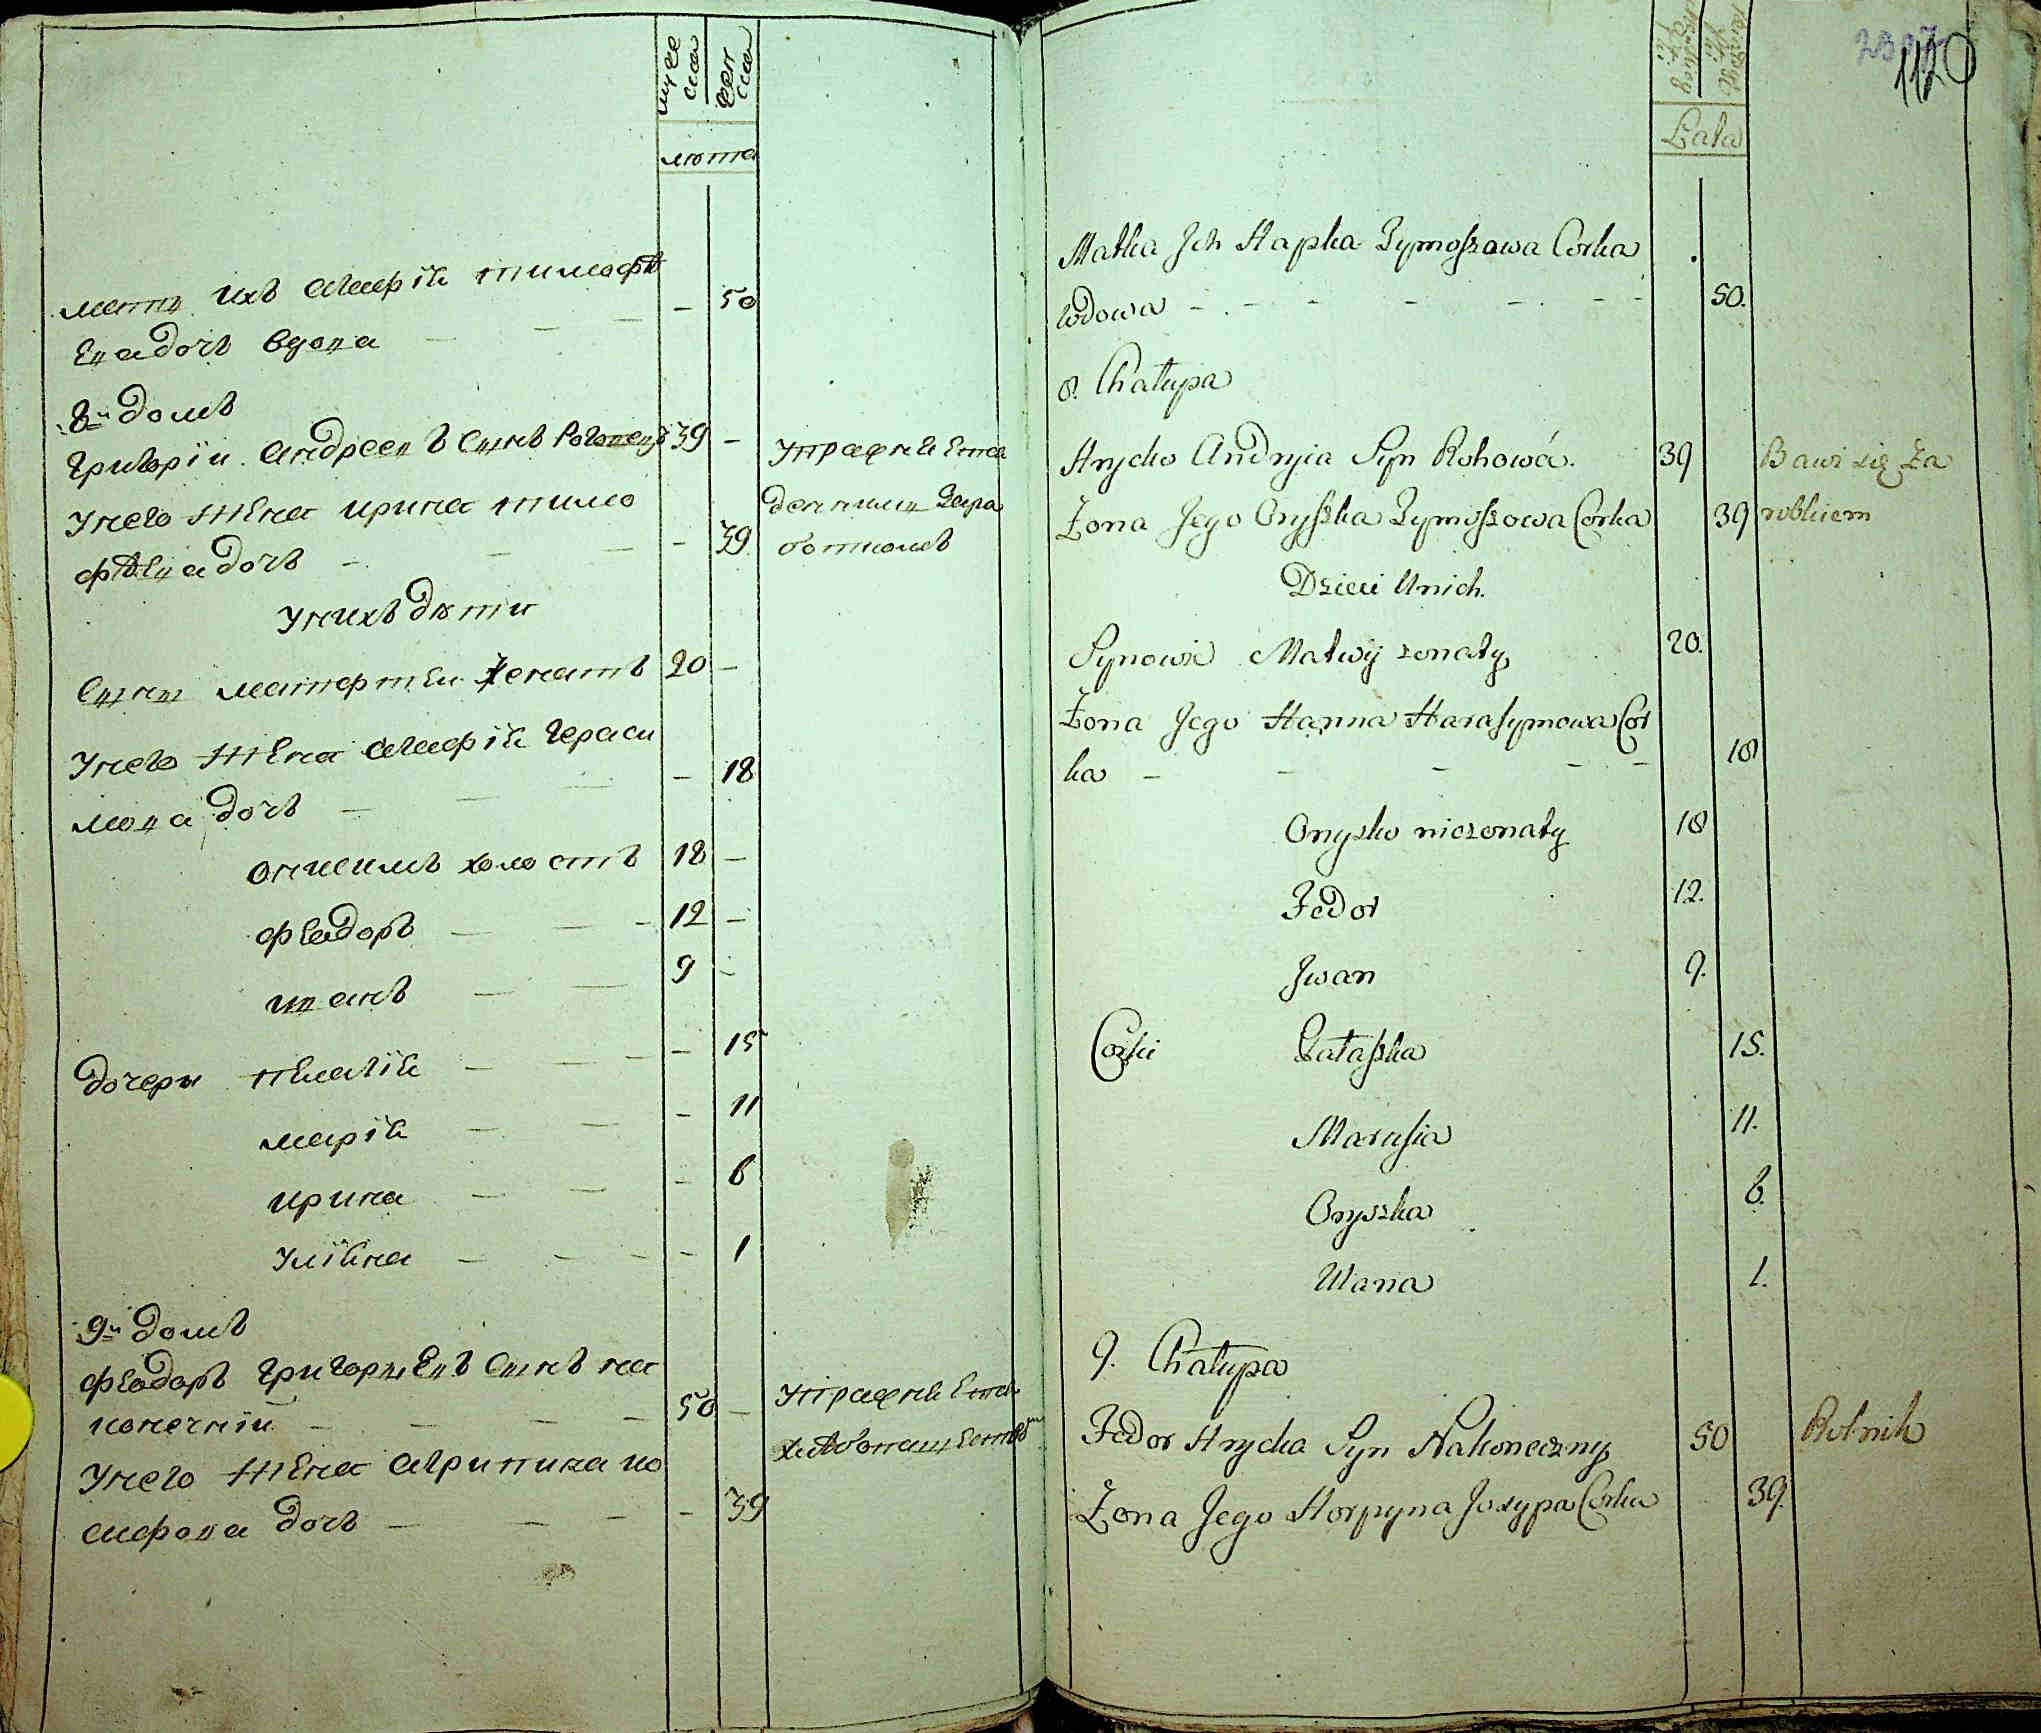 муже
ска
жен
ска
лѣта
мать ихъ Агафія тимофѣ
ева дочь вдова - - 50
8й домъ
Григорій Андреевъ сынъ Роговой 39 -
Упражняется
у него жена ирина тимо
деннымъ Зара
фѣева дочь - - - 39
боткомъ
у нихъ дѣти
сыны матфей женатъ 20 -
у него жена Агафія Гераси
мова дочь - - - - 18
онисимъ холостъ 18 -
феодоръ - - - 12 -
иванъ - - 9 -
дочери пелагія - - - - 15
марія - - - 11
ирина - - - 6
Уліяна - - - - 1
9й домъ
феодоръ Григорьевъ сынъ на
конечній - - - - 50 -
Упражняется
хлѣбопашествомъ
у него жена Агрипина ио
сифова дочь - - - - 39
1120
Lata
Matka Ich Hapka Tymoszowa Corka
wdowa - - - - - - 50.
8. Chałupa
Hrycko Andryia Syn Rohowá. 39
Bawi się Za
Żona Jego Oryszka Tymoszowa Corka 39
robkiem
Dzieci Unich.
Synowie Matwij żonaty 20.
Żona Jego Hanna Harasymowa Cor
ka - - - - - 18
Onysko nieżonaty 18
Fedor 12.
Jwan 9.
Corki Palaszka 15.
Marusia 11.
Oryszka 6.
Ulana 1.
9. Chałupa
Fedor Hrycka Syn Nakoneczny 50 Rolnik
Żona Jego Horpyna Josypa Corka 39.